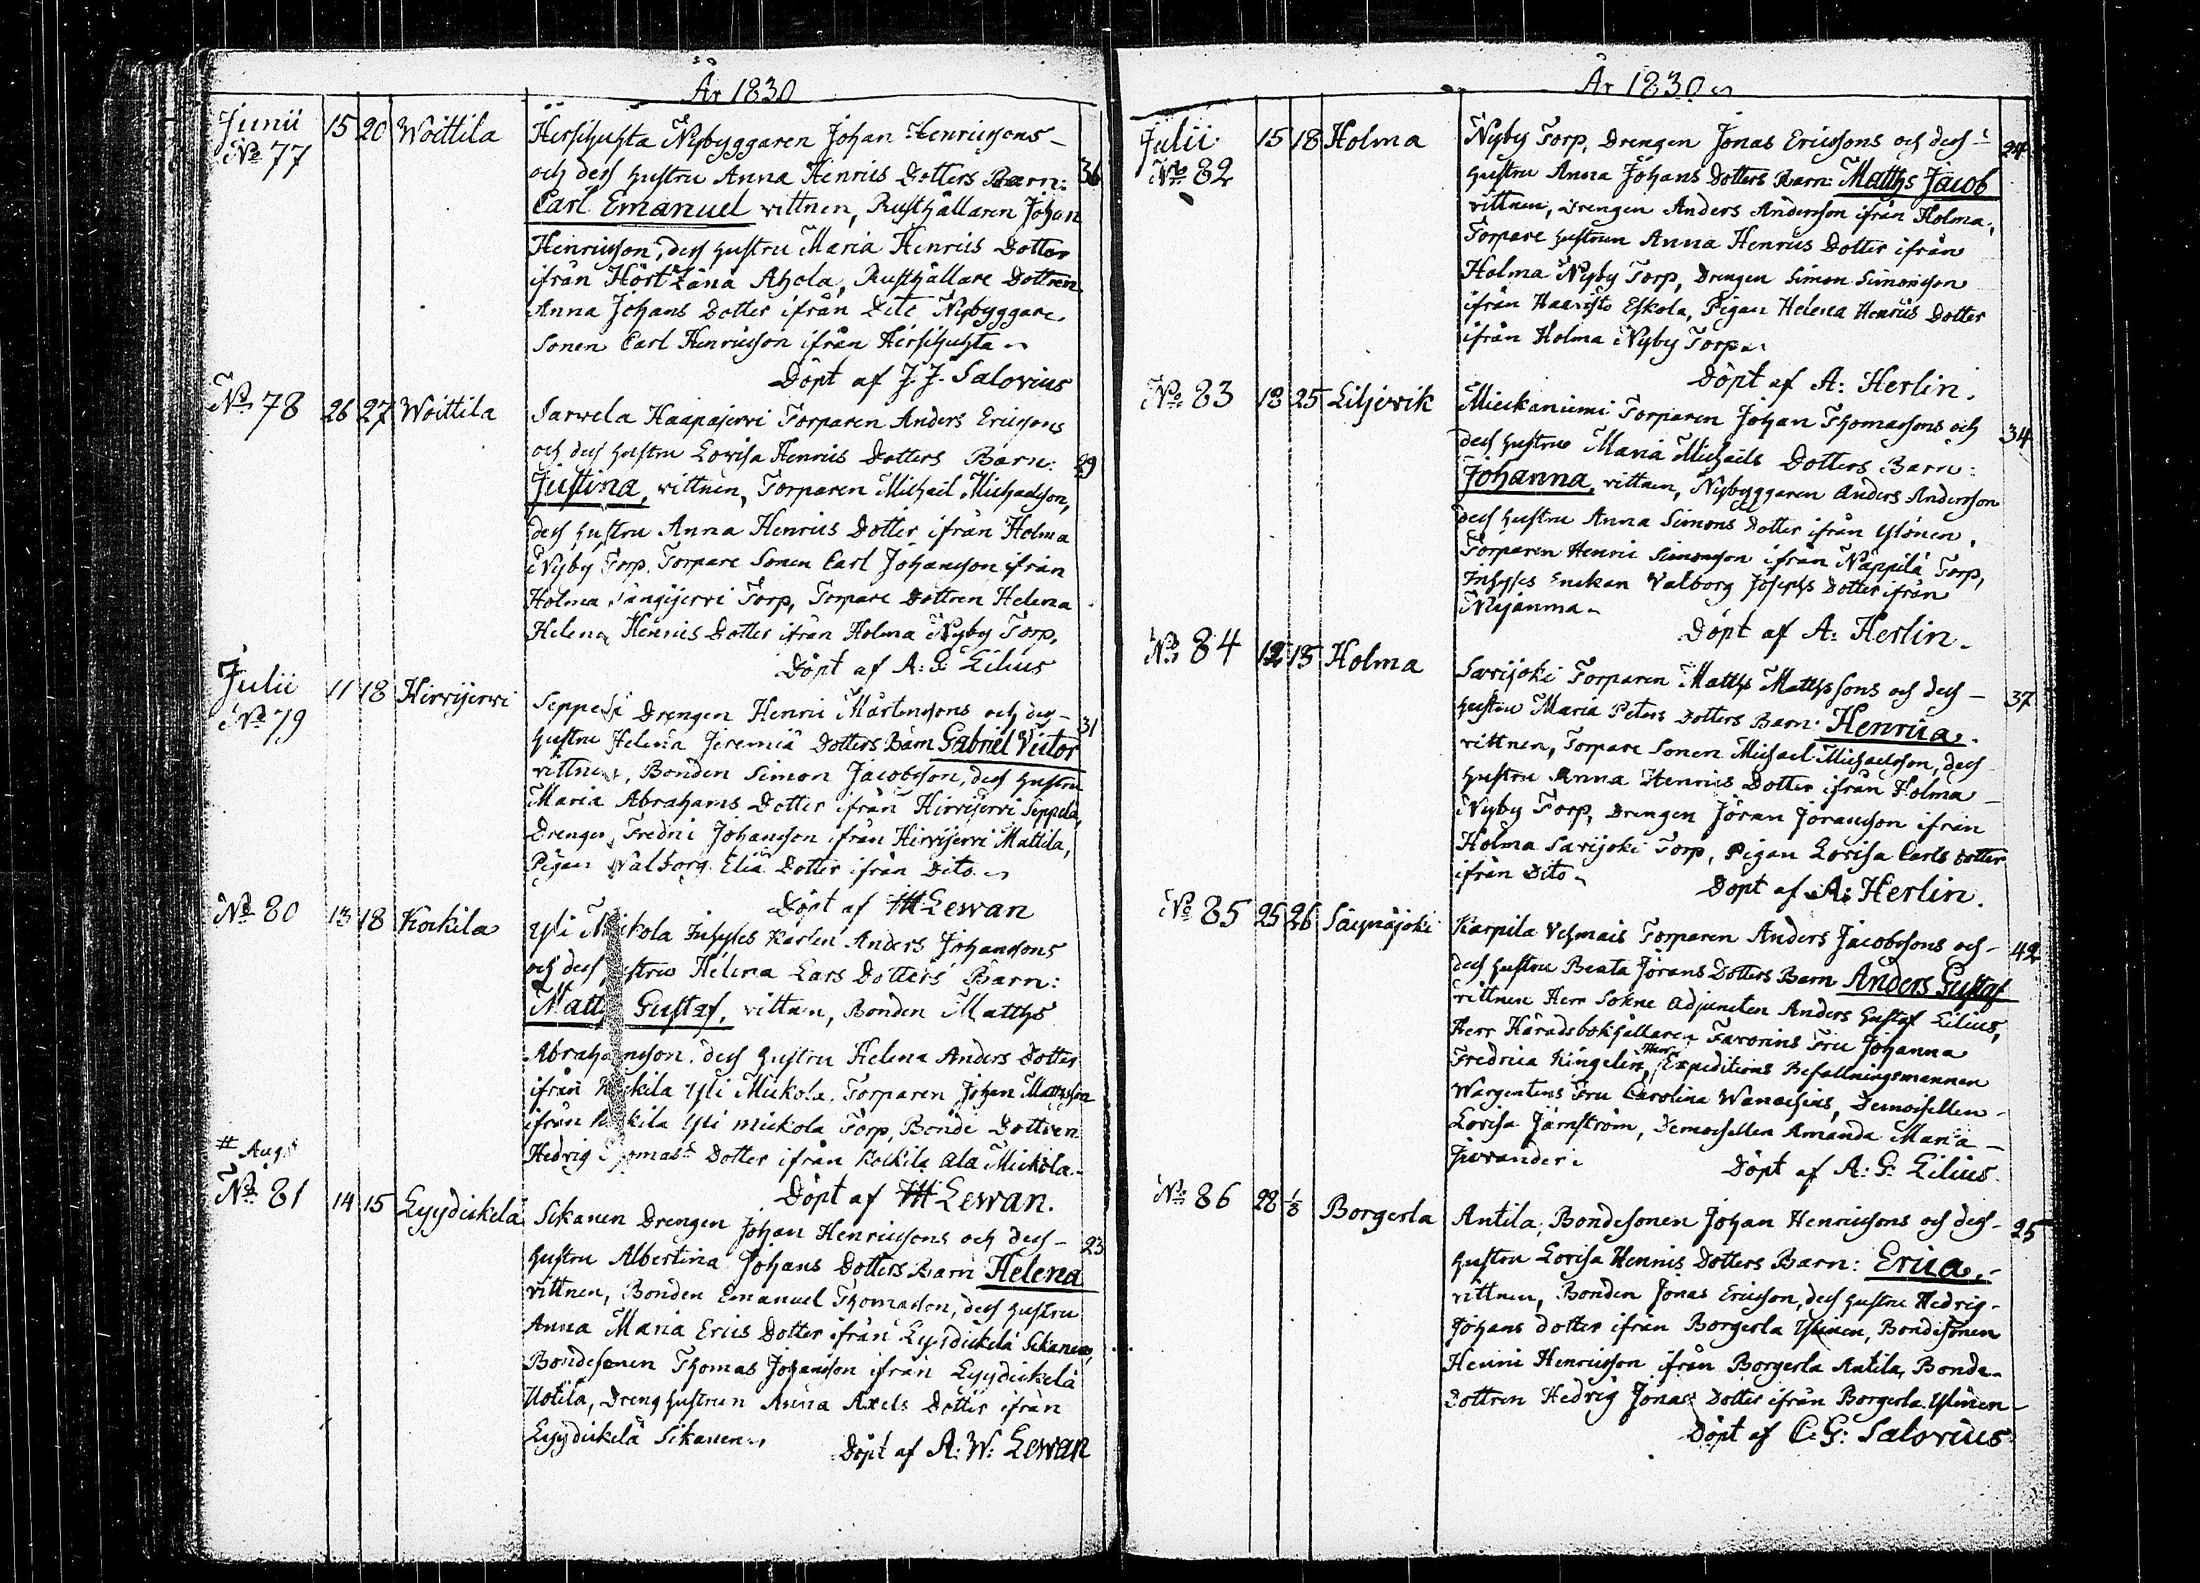 År 1830
Junii 15 20 Woittila Hirsihuhta Nybyggaren Johan Henricssons
No 77 och dess hustru Anna Henrics Dotters Barn: 36
Carl Emanuel vittnen, Rusthållaren Johan
Henricsson, dess hustru Maria Henrics Dotter
ifrån Ahola, Rusthållare Dottren
Anna Johans Dotter ifrån Dito Nybyggare
Sonen Carl Henricsson ifrån Hirsihuhta
Döpt af J. J. Salovius
No 78 26 27 Woittila Sarwela Haapajerwi Torparen Anders Ericssons
och dess hustru Lovisa Henrics Dotters Barn: 29
Justina, vittnen, Torparen Michail Michaelsson,
dess hustru Anna Henrics Dotter ifrån Holma
Nyby Torp, Torpare Sonen Carl Johansson ifrån
Holma Torp, Torpare Dottren Helena
Helena Henrics Dotter ifrån Holma Nyby Torp,
Döpt af A: G: Lilius
Julii 11 18 Hirvijerwi Drengen Henric Mårtenssons och dess
No 79 hustru Helena Jeremiæ Dotters Barn Gabriel Victor 31
vittnen, Bonden Simon Jacobsson, dess hustru
Maria Abrahams Dotter ifrån Hirvijerwi Seppelä,
Drengen Fredric Johansson ifrån Hirvijerwi Mattila,
Pigan Walborg Eliæ Dotter ifrån Dito
Döpt af Lewan
No 80 13 18 Kockila Yli Mickola Inhyses Karlen Anders Johanssons
och dess hustru Helena Lars Dotters Barn:
Matths Gustaf, vittnen, Bonden Matths
Abrahamsson, dess hustru Helena Anders Dotter
ifrån Kockila Yli Mickola, Torparen Johan Mathsson
ifrån Kockila Yli mickola Torp, Bonde Dottren
Hedvig Thomas Dotter ifrån Kockila Ala Mickola
Döpt af Lewan.
# Aug.
No 81 14 15 Lyydickelä Sikanen Drengen Johan Henricssons och dess 23
hustru Albertina Johans Dotters Barn Helena
vittnen, Bonden Emanuel Thomasson, dess hustru
Anna Maria Erics Dotter ifrån Lyydickelä Sikanen,
Bondesonen Thomas Johansson ifrån Lyydickelä
Uotila, Dreng hustrun Anna Axels Dotter ifrån
Lyydickelä Sikanen
Döpt af A: W: Lewan
År 1830
Julii 15 18 Holma Nyby Torp, Drengen Jonas Ericssons och dess 24
No 82 hustru Anna Johans Dotters Barn: Matths Jacob
vittnen, Drengen Anders Andersson ifrån Holma,
Torpare hustrun Anna Henrics Dotter ifrån
Holma Nyby Torp, Drengen Simon Simonsson
ifrån Haavisto Eskola, Pigan Helena Henrics Dotter
ifrån Holma Nyby Torp
Döpt af A: Herlin.
No 83 18 25 Liljevik Mieckaniemi Torparen Johan Thomassons och 34
dess hustru Maria Michaels Dotters Barn:
Johanna, vittnen, Nybyggaren Anders Andersson
dess hustru Anna Simons Dotter ifrån Ylönen,
Torparen Henric Simonsson ifrån Näppilä Torp,
Inhyses Enckan Valborg Josephs Dotter ifrån
Döpt af A: Herlin.
No 84 12 13 Holma Sarijoki Torparen Matths Matthssons och dess 37
hustru Maria Peters Dotters Barn: Henrica.
vittnen, Torpare Sonen Michael Michaelsson, dess
hustru Anna Henrics Dotter ifrån Holma
Nyby Torp, Drengen Jöran Jöransson ifrån
Holma Sarijoki Torp, Pigan Lovisa Carls Dotter
ifrån Dito
Döpt af A: Herlin.
No 85 25 26 Säynäjoki Karpila Torparen Anders Jacobssons och 42
dess hustru Beata Jörans Dotters Barn Anders Gustaf
vittnen Herr Sokne Adjuncten Anders Gustaf Lilius,
Herr Häradsbokhållaren Favorins Fru Johanna
Fredrica Ringelin, Herr Expeditions Befallningsmannen
Wargentins Fru Carolina Demoisellen
Lovisa Järnström, Demoisellen Amanda Maria
Döpt af A: G: Lilius.
No 86 28 1/8 Borgerla Antila, Bondesonen Johan Henricssons och dess 25
hustru Lovisa Henrics Dotters Barn: Erica,
vittnen, Bonden Jonas Ericsson, dess hustru Hedvig
Johans dotter ifrån Borgerla Ylinen, Bondesonen
Henric Henricsson ifrån Borgerla Antila, Bonde
Dottren Hedvig Jonas Dotter ifrån Borgerla Ylinen
Döpt af C: G: Salovius